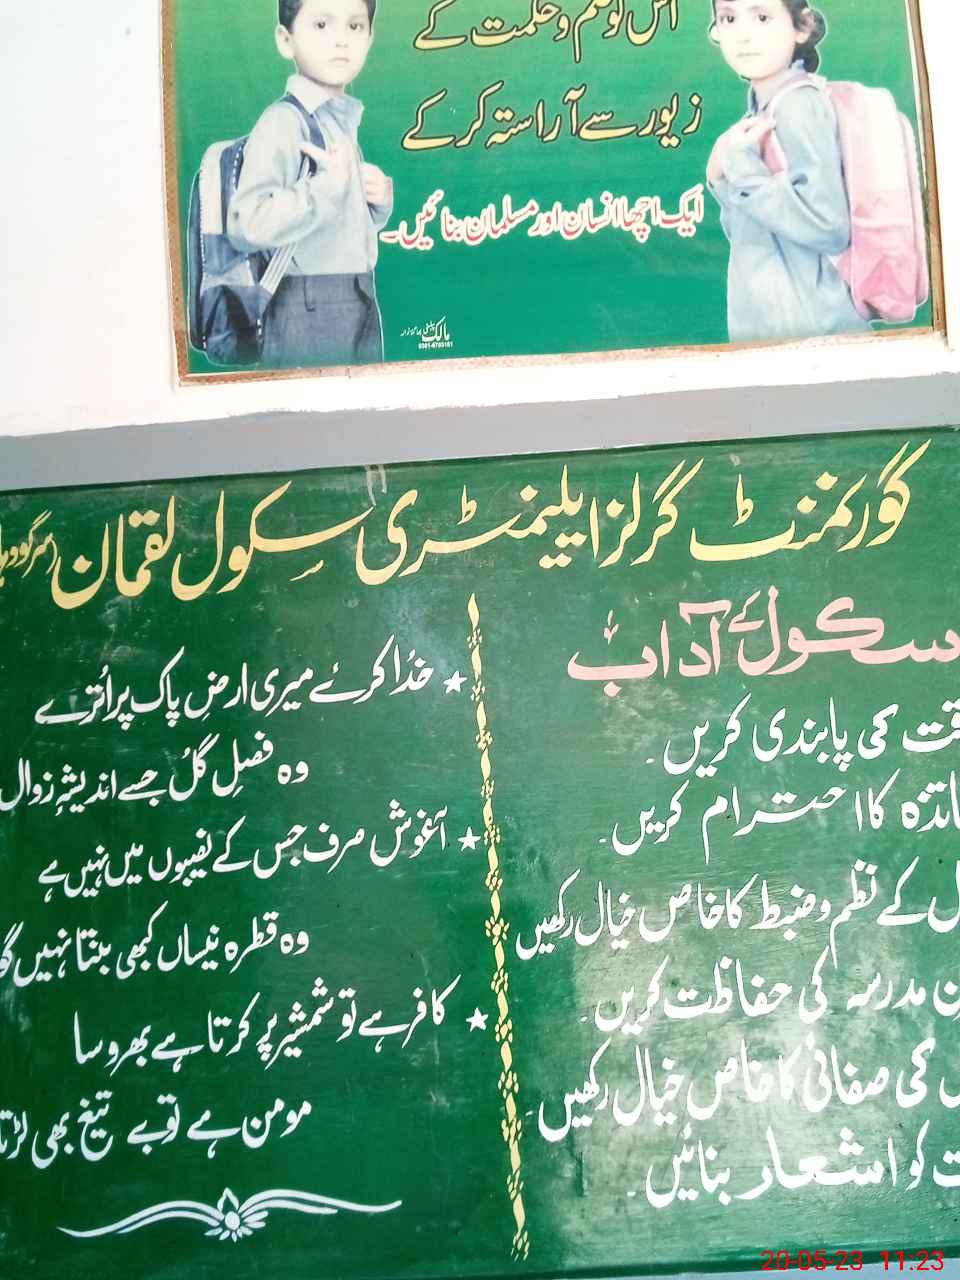 اس کو علم و حکمت کے
زیور سے آراستہ کر کے
ایک اچھا انسان اور مسلمان بنائیں۔
مالک پبلسٹی
0301-6703161
گورنمنٹ گرلز ایلیمنٹری سکول لقمان (سرگودہا
سکول کے آداب
کی پابندی کریں۔
کا احترام کریں۔
کے نظم و ضبط کا خاص خیال رکھیں
مدرسہ کی حفاظت کریں۔
کی صفائی کا خاص خیال رکھیں۔
کو اشعار بنائیں۔
خدا کرے میری ارضِ پاک پر اُترے
وہ فصلِ گلُ جسے اندیشہٗ زوال
آغوش صرف جس کے نصیبوں میں نہیں ہے
وہ قطرہ نیساں کبھی بنتا نہیں
کافر ہے تو شمشیر پر کرتا ہے بھروسا
مومن ہے تو بے تیغ بھی
20-05-23 11:23